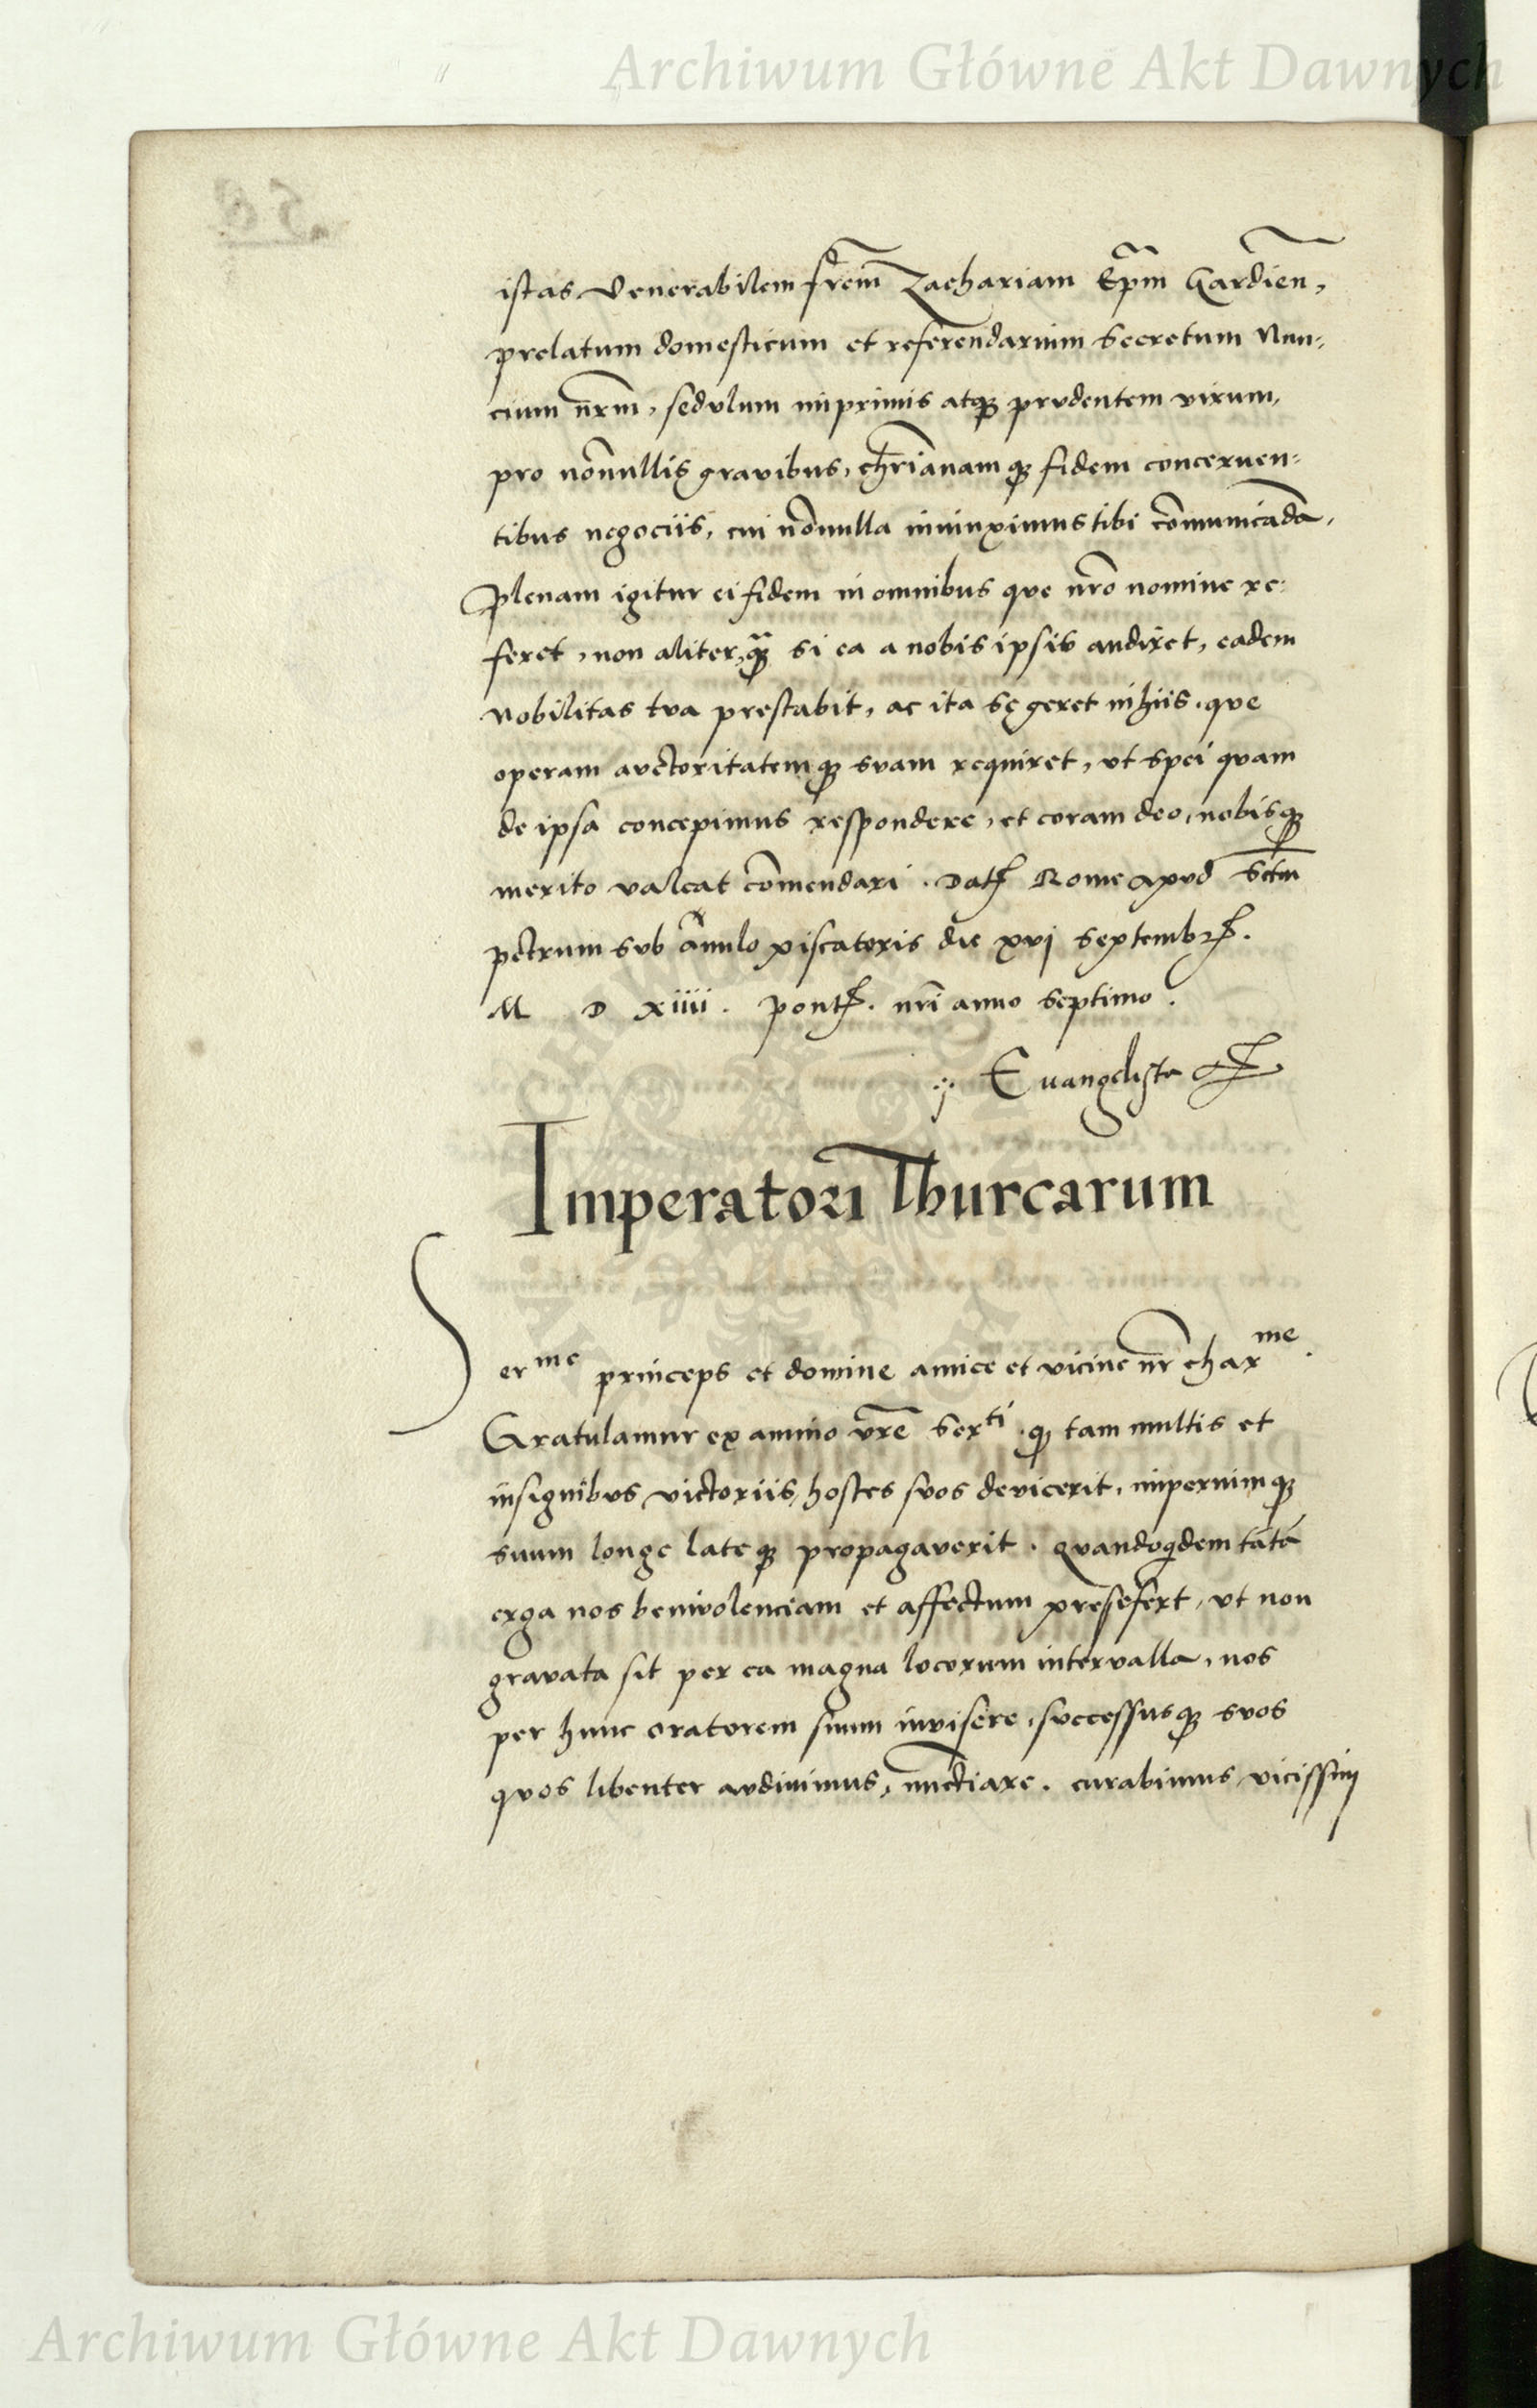 Archiwum Główne Akt Dawnych
istas Venerabilem frem̃ Zachariam Ep̃m Gardien̄,
prelatum domesticum et referendarium secretum Nun-
cium nrm̃, sedulum inprimis atqꝫ prudentem virum,
pro nõnullis gravibus, chr̃ianamqꝫ fidem concernen-
tibus negociis, cui nõnulla iniunximus tibi cõmunicãda,
Plenam igitur ei fidem in omnibus que nr̃o nomine re-
feret, non aliter, q̃ꝫ si ea a nobis ipsis audiret, eadem
Nobilitas tua prestabit, ac ita sę geret in hiis, que
operam auctoritatemqꝫ suam requiret, ut spei quam
de ipsa concepimus respondere, et coram deo, nobisqꝫ
merito valeat cõmendari. Dat̃ Rome apud Sctm̃
petrum sub ãnulo piscatoris die xvj Septembr̃.
M D Xiiii. Pont̃. nr̃i anno Septimo.
Evangelista
Imperatori Thurcarum
Serᵐᵉ princeps et domine amice et vicine nr̃ charᵐᵉ.
Gratulamur ex animo vr̃e Serᵗⁱ. qꝫ tam multis et
insignibus victoriis, hostes suos devicerit, imperiumqꝫ
suum longe lateqꝫ propagaverit. quandoq̃dem tãtã
erga nos benivolenciam et affectum presefert, ut non
gravata sit per ea magna locorum intervalla, nos
per hunc oratorem suum invisere, successusqꝫ suos
quos libenter audivimus, nunctiare. curabimus vicissim
Archiwum Główne Akt Dawnych